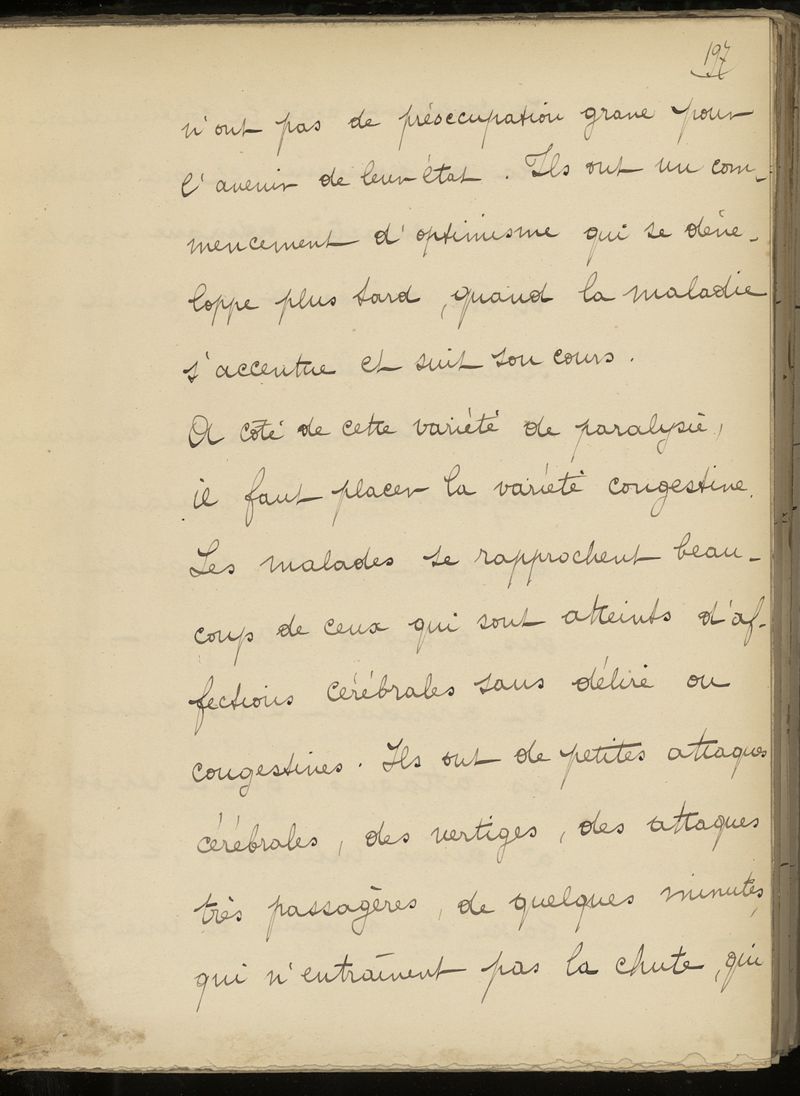 197
n'ont pas de préoccupation grave pour
l'avenir de leur état. Ils ont un com-
mencement d'optimisme qui se déve-
loppe plus tard, quand la maladie
s'accentue et suit son cours.
A côté de cette variété de paralysie,
il faut placer la variété congestive.
Les malades se rapprochent beau-
coup de ceux qui sont atteints d'af-
fections cérébrales sans délire ou
congestives. Ils ont de petites attaques
cérébrales, des vertiges, des attaques
très passagères, de quelques minutes,
qui n'entraînent pas la chute, qui